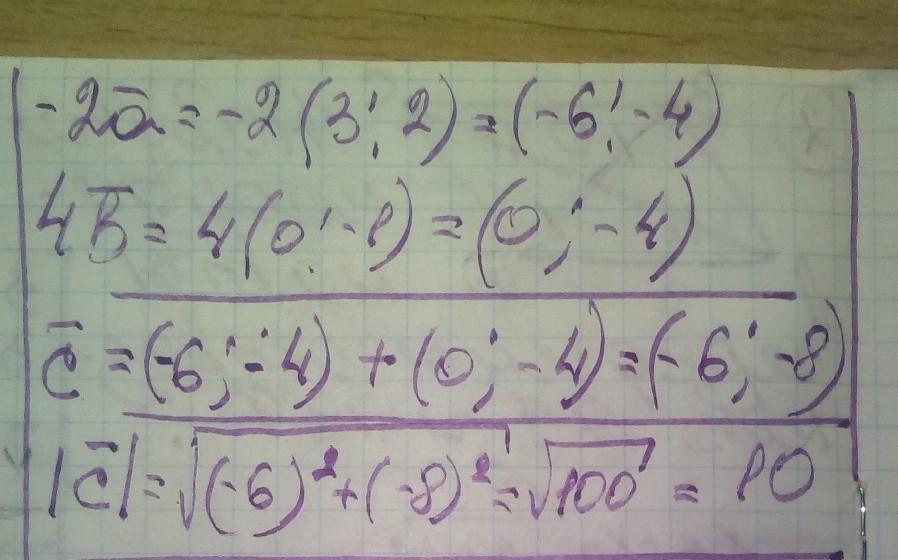 -2a̅ = -2 (3; 2) = (-6; -4)
4b̅ = 4 (0; -1) = (0; -4)
c̅ = (-6; -4) + (0; -4) = (-6; -8)
|c̅| = √((-6)² + (-8)²) = √100 = 10